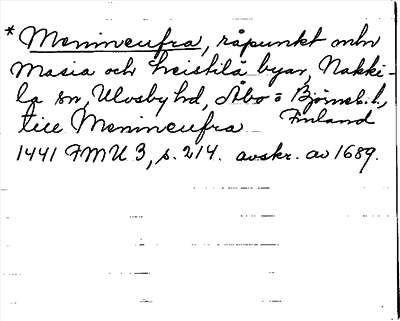 * Menincufra, råpunkt mln
Masia och Leistilä byar, Nakki-
la sn, Ulvsby hd, Åbo o Björneb. l.,
till Menincufra Finland
1441 FMU 3, s. 214. avskr. av 1689.